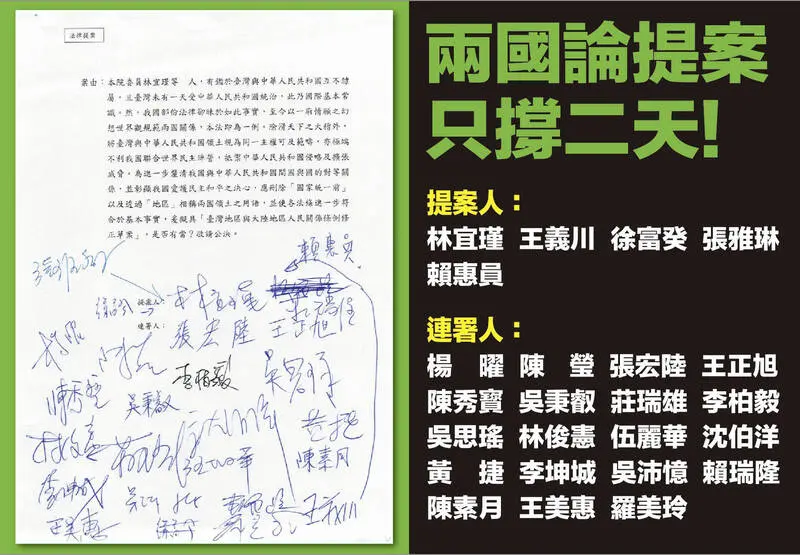 法律提案
案由：本院委員林宜瑾等　人，有鑑於臺灣與中華人民共和國互不隸
屬，且臺灣未有一天受中華人民共和國統治，此乃國際基本常
識。然，我國部份法律卻昧於如此事實，至今以一廂情願之幻
想世界觀規範兩國關係，本法即為一例。除清天下之大稽外，
將臺灣與中華人民共和國領土視為同一主權可及範疇，亦極端
不利我國聯合世界民主陣營，抵禦中華人民共和國侵略及擴張
威脅。為進一步釐清我國與中華人民共和國間國與國的對等關
係，並彰顯我國愛護民主和平之決心，應刪除「國家統一前」
以及透過「地區」相稱兩國領土之用語，並使各法條進一步符
合於基本事實，爰擬具「臺灣地區與大陸地區人民關係條例修
正草案」，是否有當？敬請公決。
賴惠員
提案人：
連署人：
張宏陸
王正旭
李柏毅
陳秀寶
吳秉叡
吳思瑤
黃捷
陳素月
兩國論提案
只撐二天！
提案人：
林宜瑾 王義川 徐富癸 張雅琳
賴惠員
連署人：
楊　曜 陳　瑩 張宏陸 王正旭
陳秀寶 吳秉叡 莊瑞雄 李柏毅
吳思瑤 林俊憲 伍麗華 沈伯洋
黃　捷 李坤城 吳沛憶 賴瑞隆
陳素月 王美惠 羅美玲